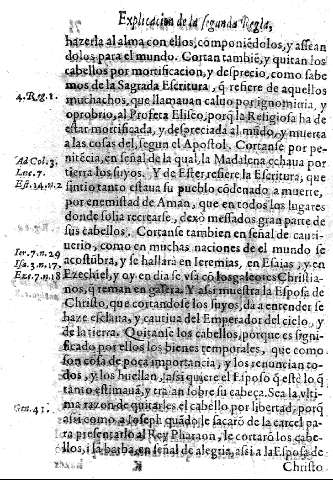 Explicacion de la segunda Regla,
hazerla al alma con ellos, componiēdolos, y assean
dolos para el mundo. Cortan tambiē, y quitan los
cabellos por mortificacion, y desprecio, como sabe
mos de la Sagrada Escritura, q̄ refiere de aquellos
4. Reg. 2.
muchachos, que llamauan caluo por ignominia, y
oprobrio, al Profeta Eliseo, porq̄ la Religiosa ha de
estar mortificada, y despreciada al mūdo, y muerta
a las cosas del, segun el Apostol. Cortanse por pe-
Ad Col. 3.
nitēcia, en señal de la qual, la Madalena echaua por
Luc. 7.
tierra los suyos. Y de Ester refiere la Escritura, que
Est. 14. n. 2
sintio tanto estaua su pueblo cōdenado a muerte,
por enemistad de Aman, que en todos los lugares
donde solia recrearse, dexò messados gran parte de
sus cabellos. Cortanse tambien en señal de cauti-
Ier. 7. n. 29
uerio, como en muchas naciones de el mundo se
Isa. 3. n. 17.
acostūbra, y se hallarà en Ieremias, en Esaias, y en
Eze. 7. n. 18
Ezechiel, y oy en dia se vsa cō los galeotes Christia-
nos, q̄ reman en galera. Y assi muestra la Esposa de
Christo, que cortandose los suyos, da a entender se
haze esclaua, y cautiua del Emperador del cielo, y
de la tierra. Quitanse los cabellos, porque es signi-
ficado por ellos los bienes temporales, que como
son cosa de poca importancia, y los renuncian to-
dos, y los huellan, assi quiere el Esposo q̄ estè lo q̄
tanto estimauā, y traian sobre su cabeça. Sea la vlti
ma razon de quitarles el cabello por libertad, porq̄
Gen. 41.
assi como a Ioseph quādo le sacarō de la carcel pa-
ra presentarlo al Rey Pharaon, le cortarō los cabe-
llos, i la barba, en señal de alegria, assi a la Esposa de
Christo